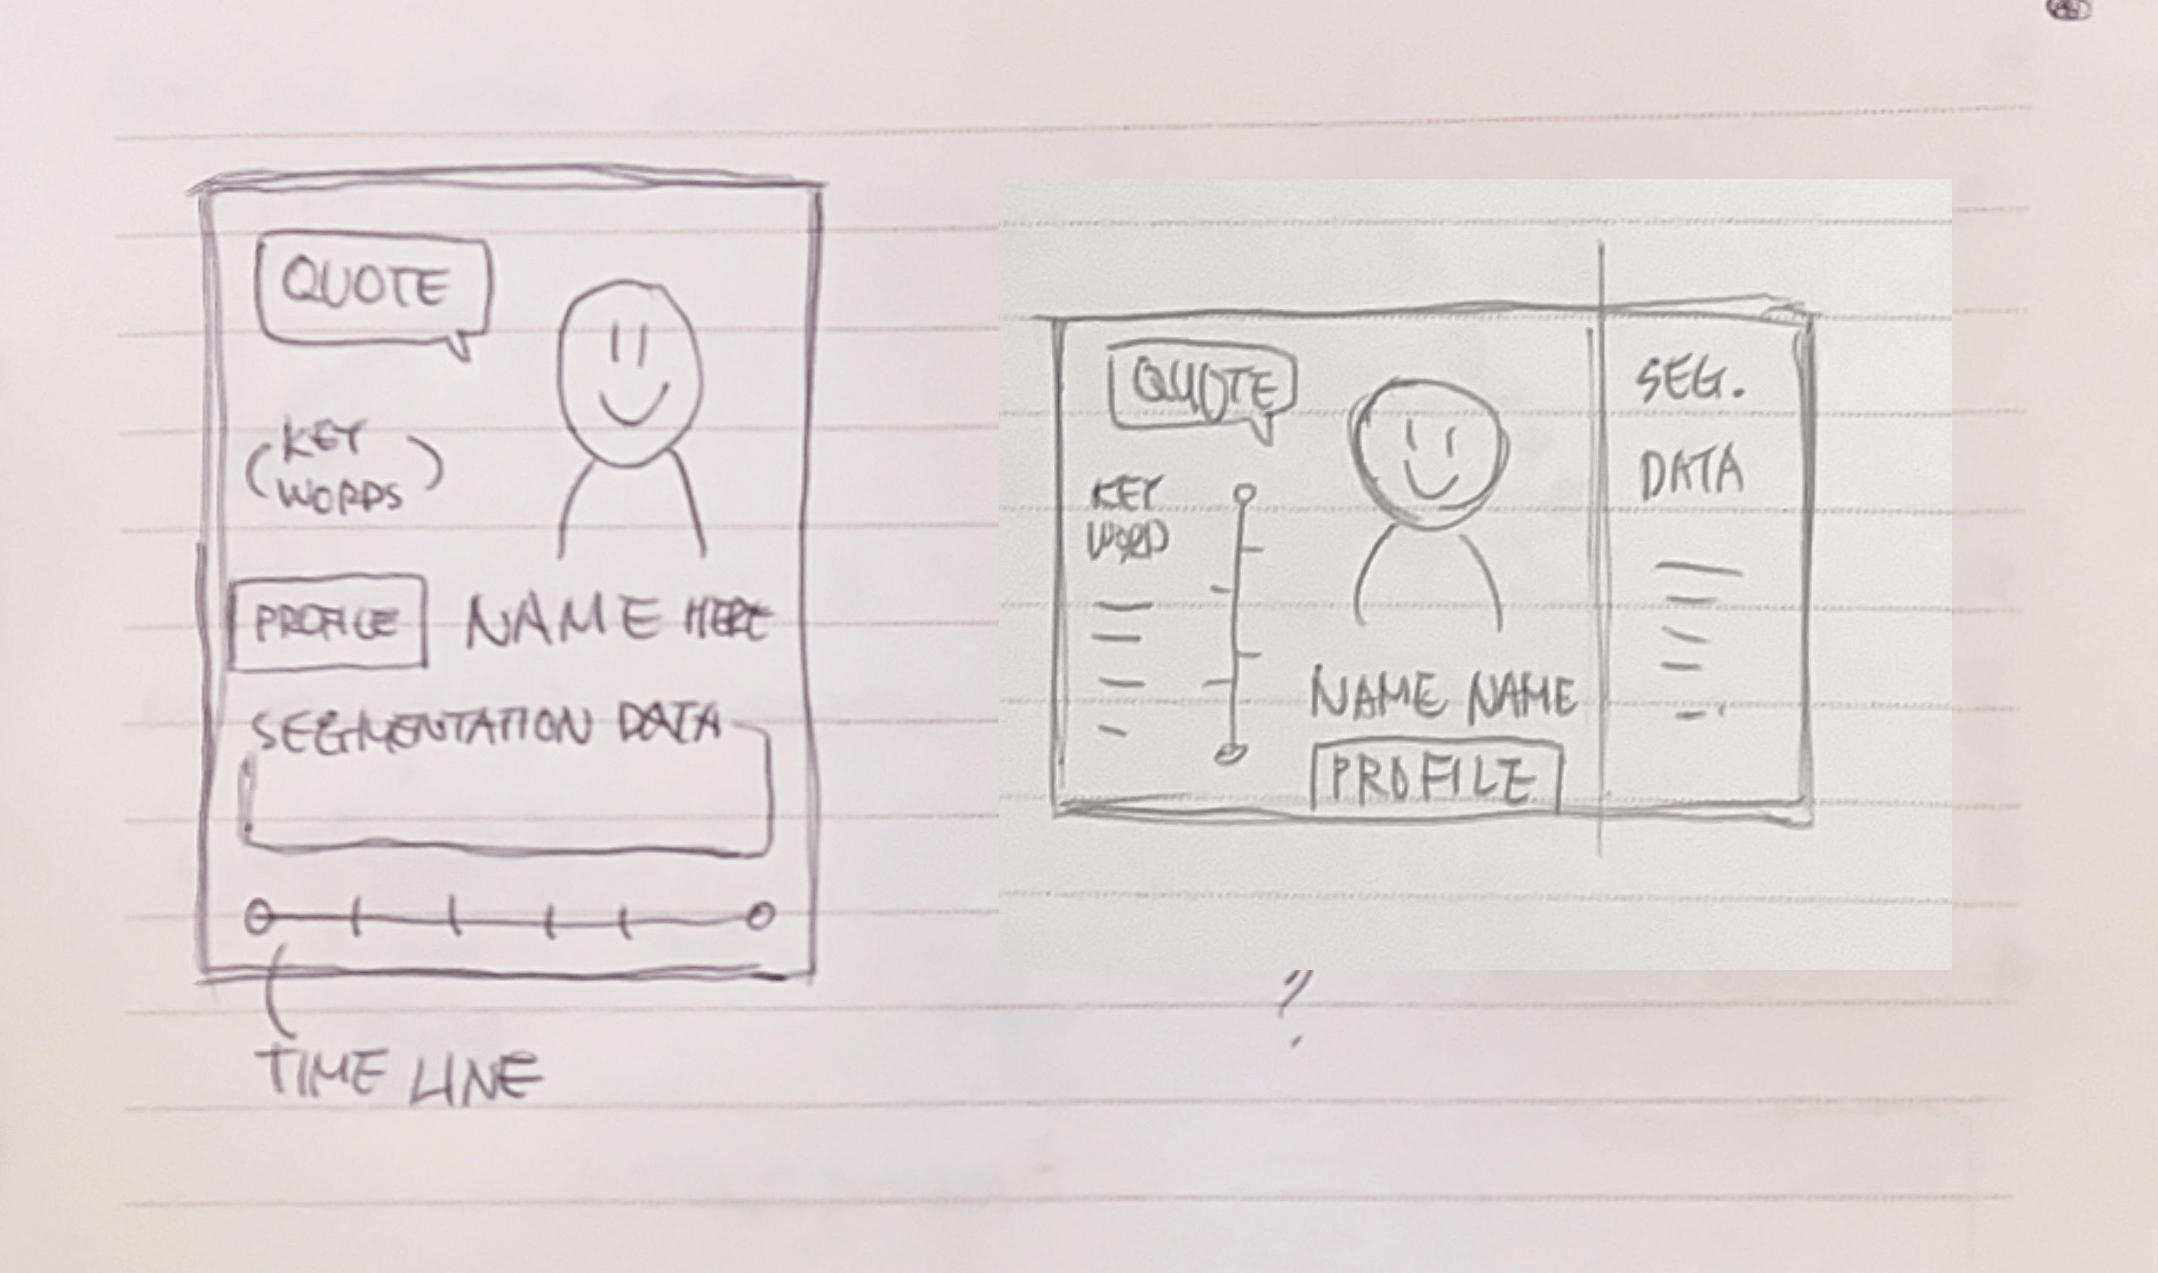 QUOTE
KEY
WORDS
PROFILE
NAME HERE
SEGMENTATION DATA
TIME LINE
QUOTE
KEY
WORD
NAME NAME
PROFILE
SEG.
DATA
?